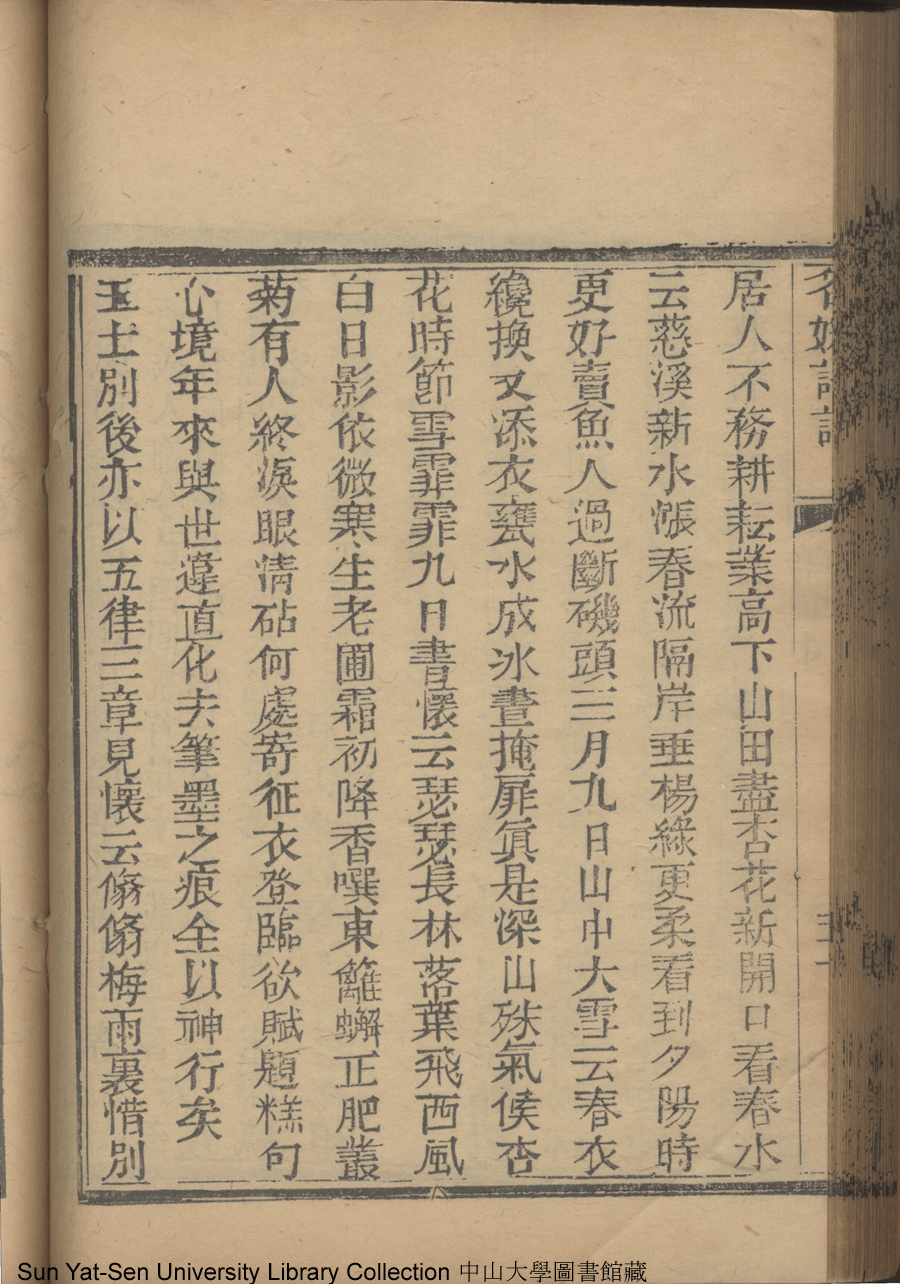 居人不務耕耘業高下山田盡杏花新開口看春水
云慈溪新水漲春流隔岸垂楊綠更柔看到夕陽時
更好賣魚人過斷磯頭三月九日山中大雪云春衣
纔換又添衣甕水成冰晝掩扉眞是深山殊氣候杏
花時節雪霏霏九日書懷云瑟瑟長林落葉飛西風
白日影依微寒生老圃霜初降香噀東籬蠏正肥叢
菊有人終淚眼情砧何處寄征衣登臨欲賦題糕句
心境年來與世違直化去筆墨之痕全以神行矣
玉士別後亦以五律三章見懷云翛翛梅雨裏惜別
Sun Yat-Sen University Library Collection 中山大學圖書館藏